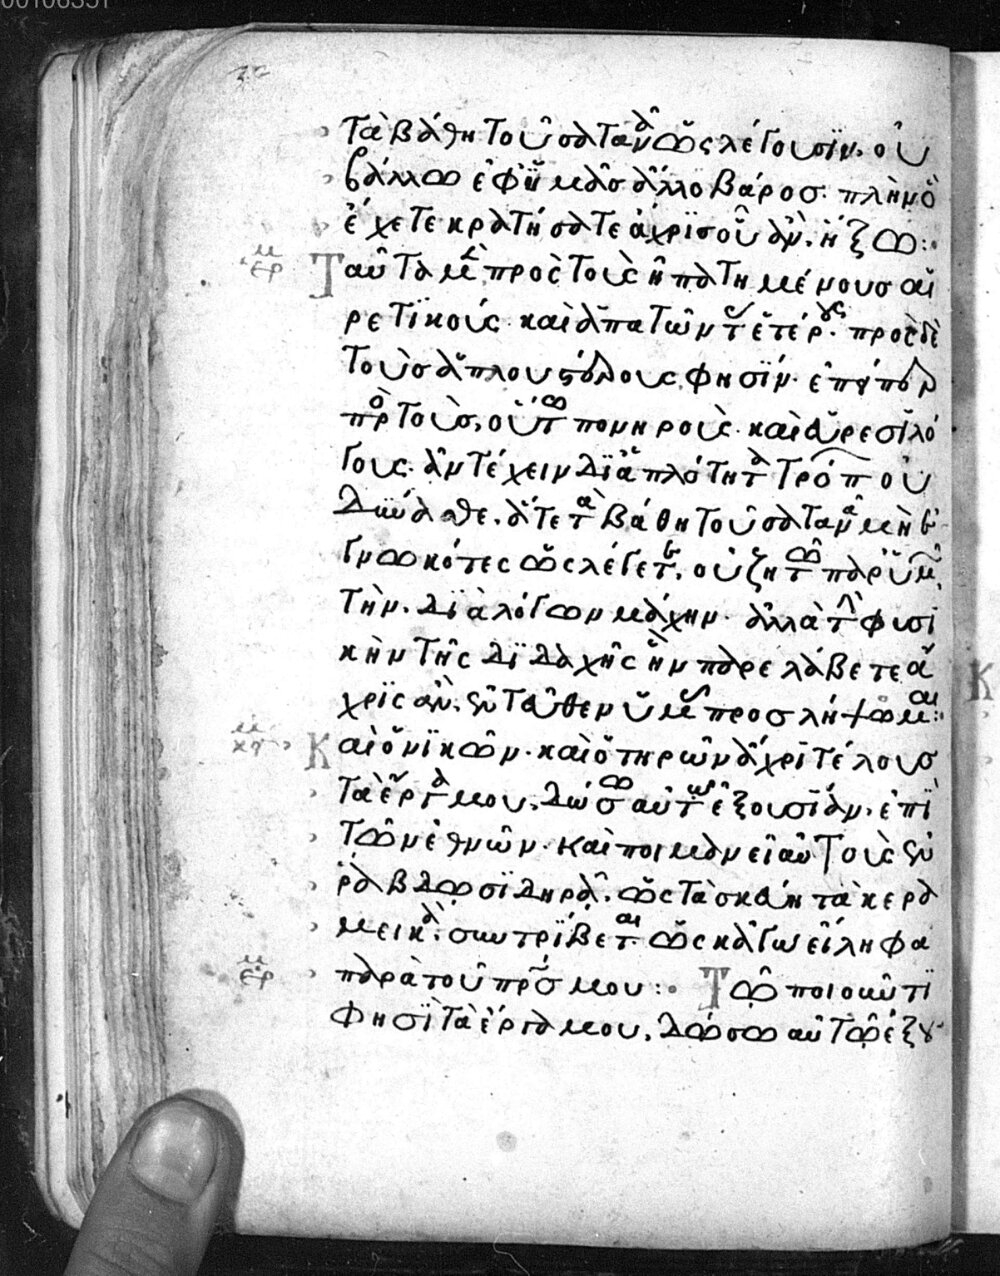 τὰ βάθη τοῦ σατανᾶ ὥς λέγουσϊν. οὐ
βάλλω ἐφ ὑμᾶσ ἄλλο βάροσ. πλὴν ὃ
ἔχετε κρατήσατε ἀχρϊσ οὗ ἂν ἥξω:
Ταῦτα μὲν πρὸς τοὺς ἠπατημένουσ αἱ
ρετϊκούς. καὶ ἀπατῶντ ἑτέρους. πρὸς δὲ
τοὺσ ἁπλουστέρους, φησΐν. ἐπειδὴ
πρ τοὺσ, οὕτω πονηροὺς. καὶ αἱρεσϊλό
γους. ἀντέχειν δϊ ἁπλότητα τρόπ οὐ
δύνασθε. ἅτε τὰ βάθη τοῦ σατανᾶ μὴ ἐ
γνωκότες ὥς λέγετε, οὐ ζητῶ παρ ὑμῶν,
τὴν δϊὰ λόγων μάχην. ἀλλὰ τὴν φυσϊ
κὴν τῆς δϊδαχῆς ἣν παρελάβετε ἄ
χρϊς ἂν ἐντεῦθεν ὑμᾶς προσλήψωμαι:
Καὶ ὁ νϊκῶν. καὶ ὁ τηρῶν ἄχρϊ τέλουσ
τὰ ἔργα μου, δώσω αὐτῶ ἐξουσϊαν. ἐπϊ
τῶν ἐθνῶν. καὶ ποιμανεῖ αὐτοὺς ἐν
ῥάβδω σϊδηρᾶ. ὥς τὰ σκεύη τὰ κερα
μεικὰ. συντρϊβεται ὥς κἀγω εἴληφα
παρὰ τοῦ πρσ μου: Τῶ ποιοῦντϊ
φησϊ τὰ ἔργα μου, δώσω αὐτῶ ἐξου